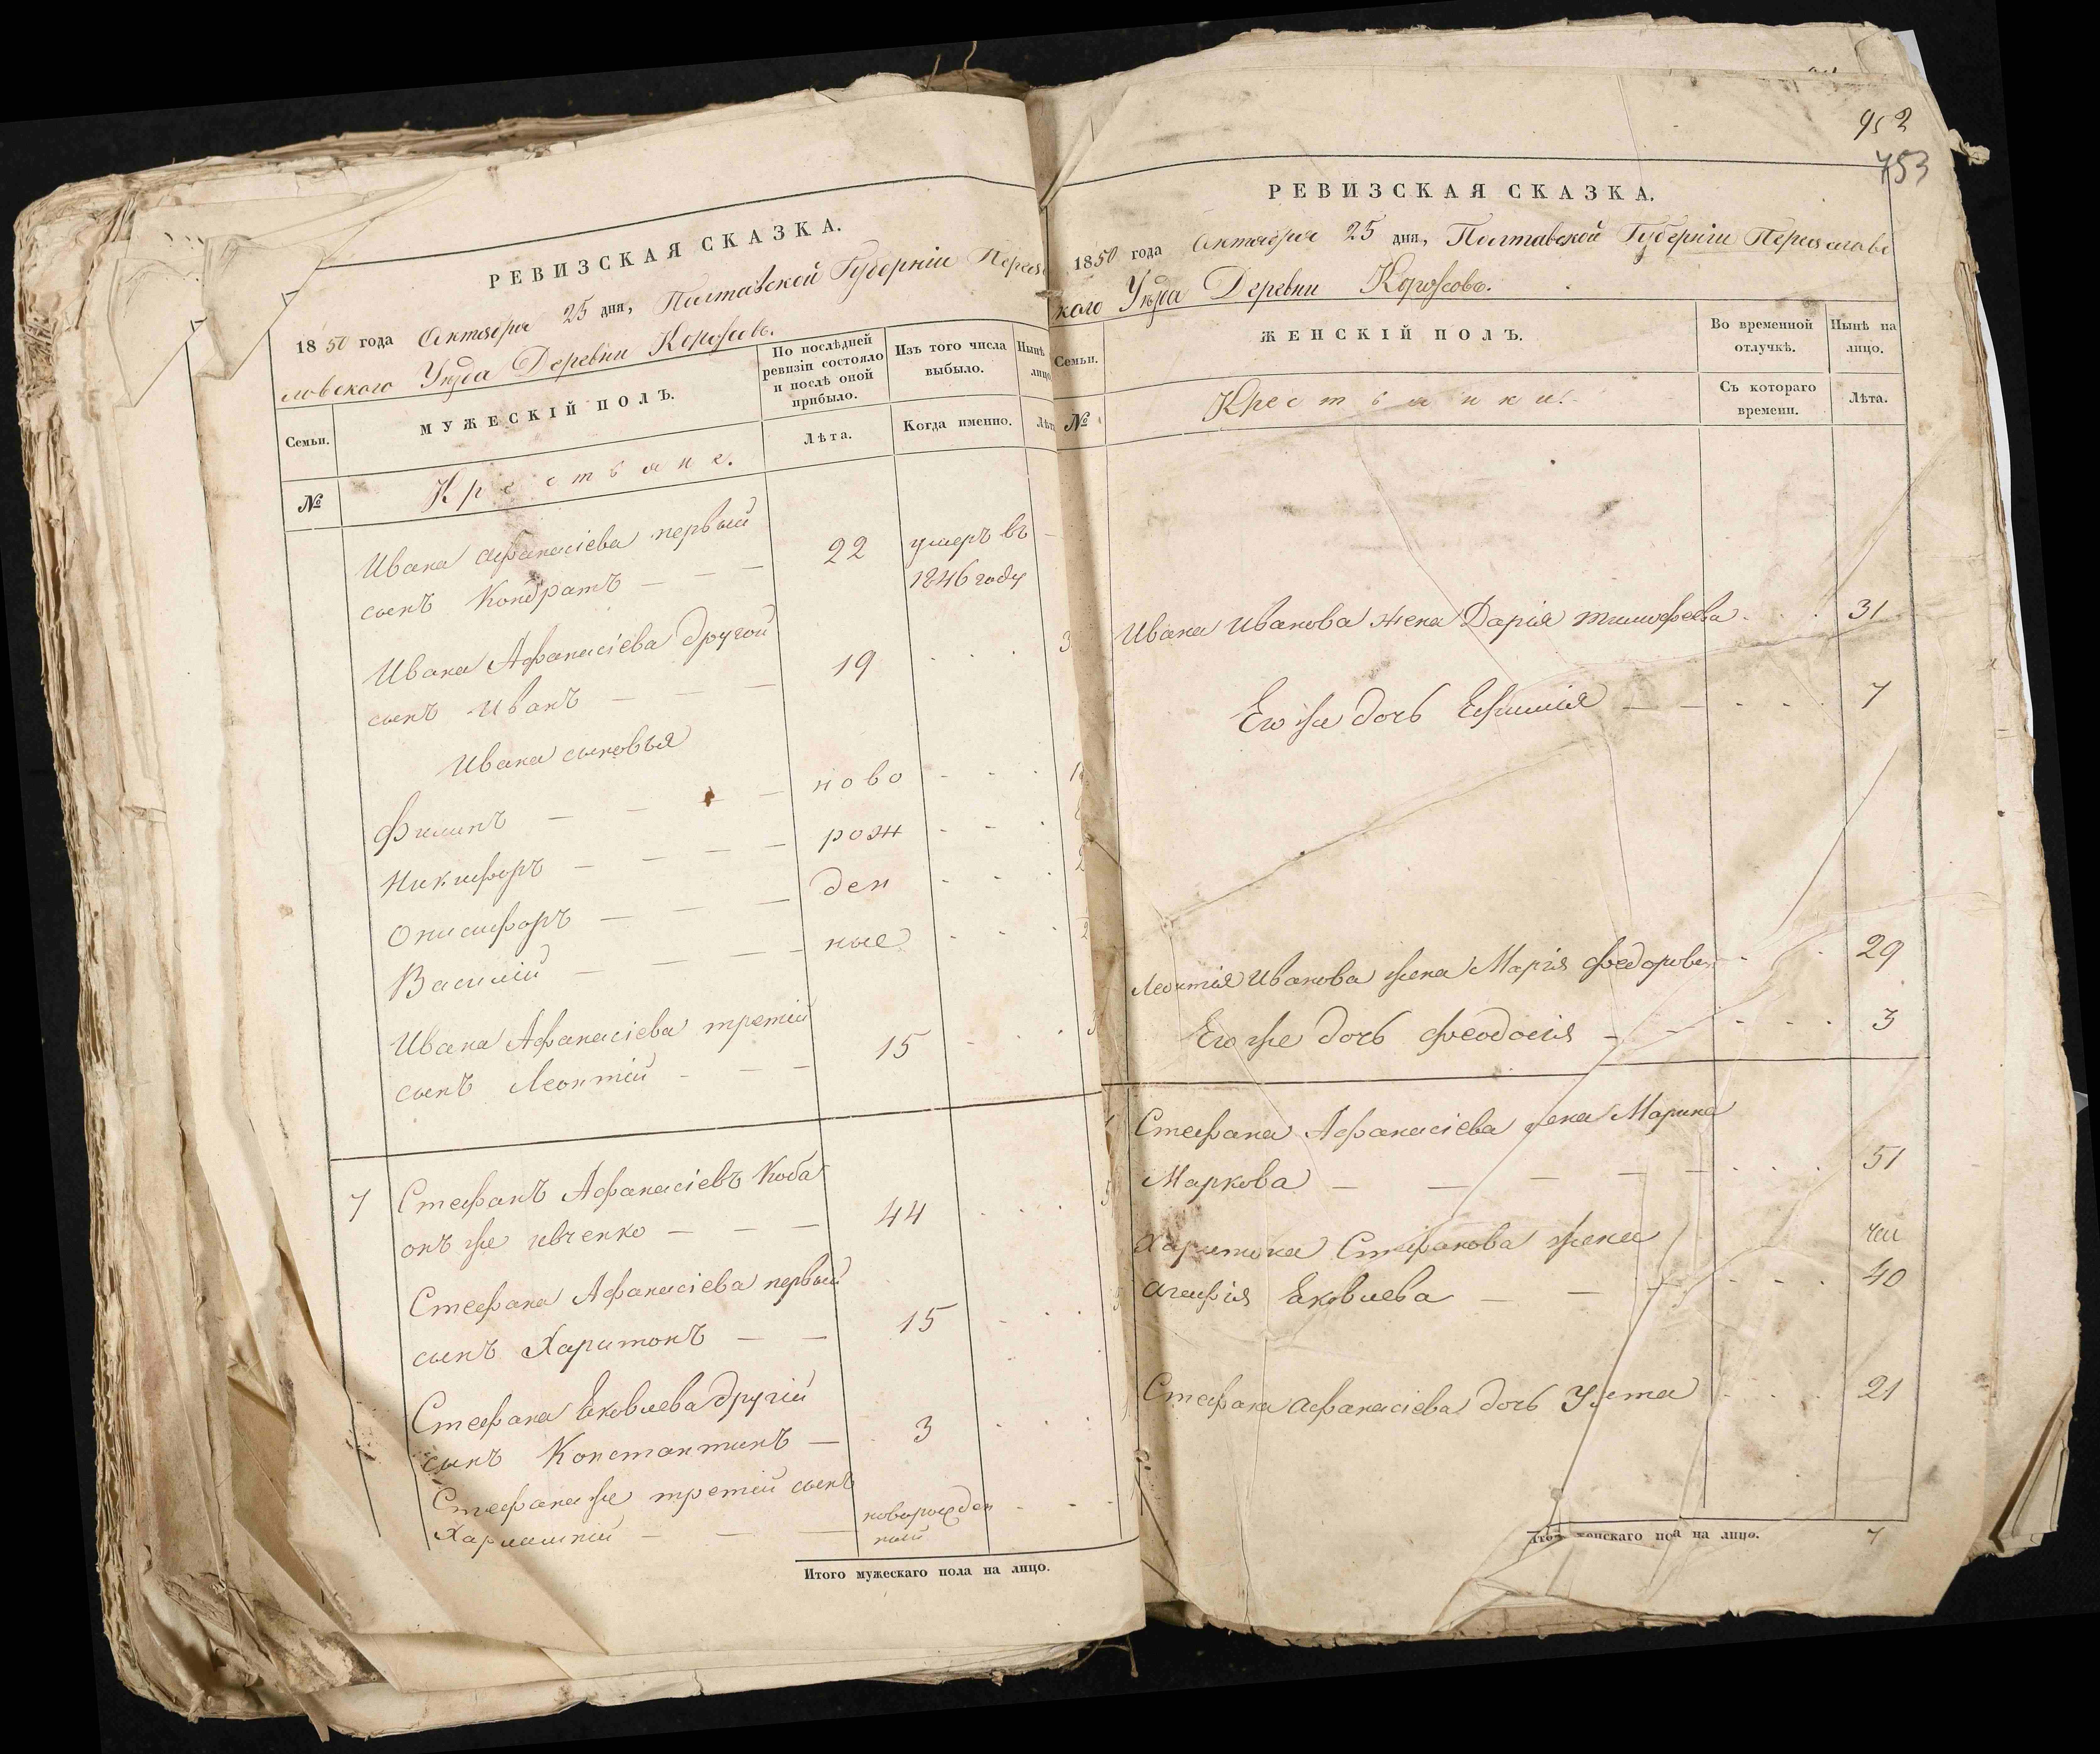 РЕВИЗСКАЯ СКАЗКА.
1850 года Октября 25 дня, Полтавской Губерніи Перея
словского Уѣзда Деревни
Семьи.
МУЖЕСКІЙ ПОЛЪ.
По послѣдней ревизіи состояло и послѣ оной прибыло.
Изъ того числа выбыло.
Нынѣ
лицо
№
Крестьяне.
Лѣта.
Когда именно.
Лѣт
Ивана Афанасіева первый
сынъ Кондратъ — — —
22
умеръ въ
1846 году
Ивана Афанасіева другой
сынъ Иванъ — — —
19
3
Ивана сыновья
Филипъ — — —
ново
Никифоръ — — — —
рож
Онисифоръ — — —
ден
Василій — — — —
ные
2
Ивана Афанасіева третій
сынъ Леонтій — — —
15
3
7
Стефанъ Афанасіевъ Коба
онъ же Ивченко — — —
44
Стефана Афанасіева первый
сынъ Харитонъ — —
15
Стефана Яковлева другій
сынъ Константинъ —
3
Стефана же третій сынъ
Харлампій — — —
новорожден
ный
Итого мужескаго пола на лицо.
952
753
РЕВИЗСКАЯ СКАЗКА.
1850 года Октября 25 дня, Полтавской Губерніи Переяслов
кого Уѣзда Деревни
Семьи.
ЖЕНСКІЙ ПОЛЪ.
Во временной отлучкѣ.
Нынѣ на лицо.
№
Крестьянки.
Съ котораго времени.
Лѣта.
Ивана Иванова жена Дарія Тимофеева
31
Его же дочь Ефимія — —
7
Леонтія Иванова жена Марія Федорова
29
Его же дочь Феодосія — —
3
Стефана Афанасіева жена Марина
Маркова — — — — —
51
Харитона Стефанова жена
Агафія Яковлева — — —
40
Стефана Афанасіева дочь
21
Итого женскаго пола на лицо.
7